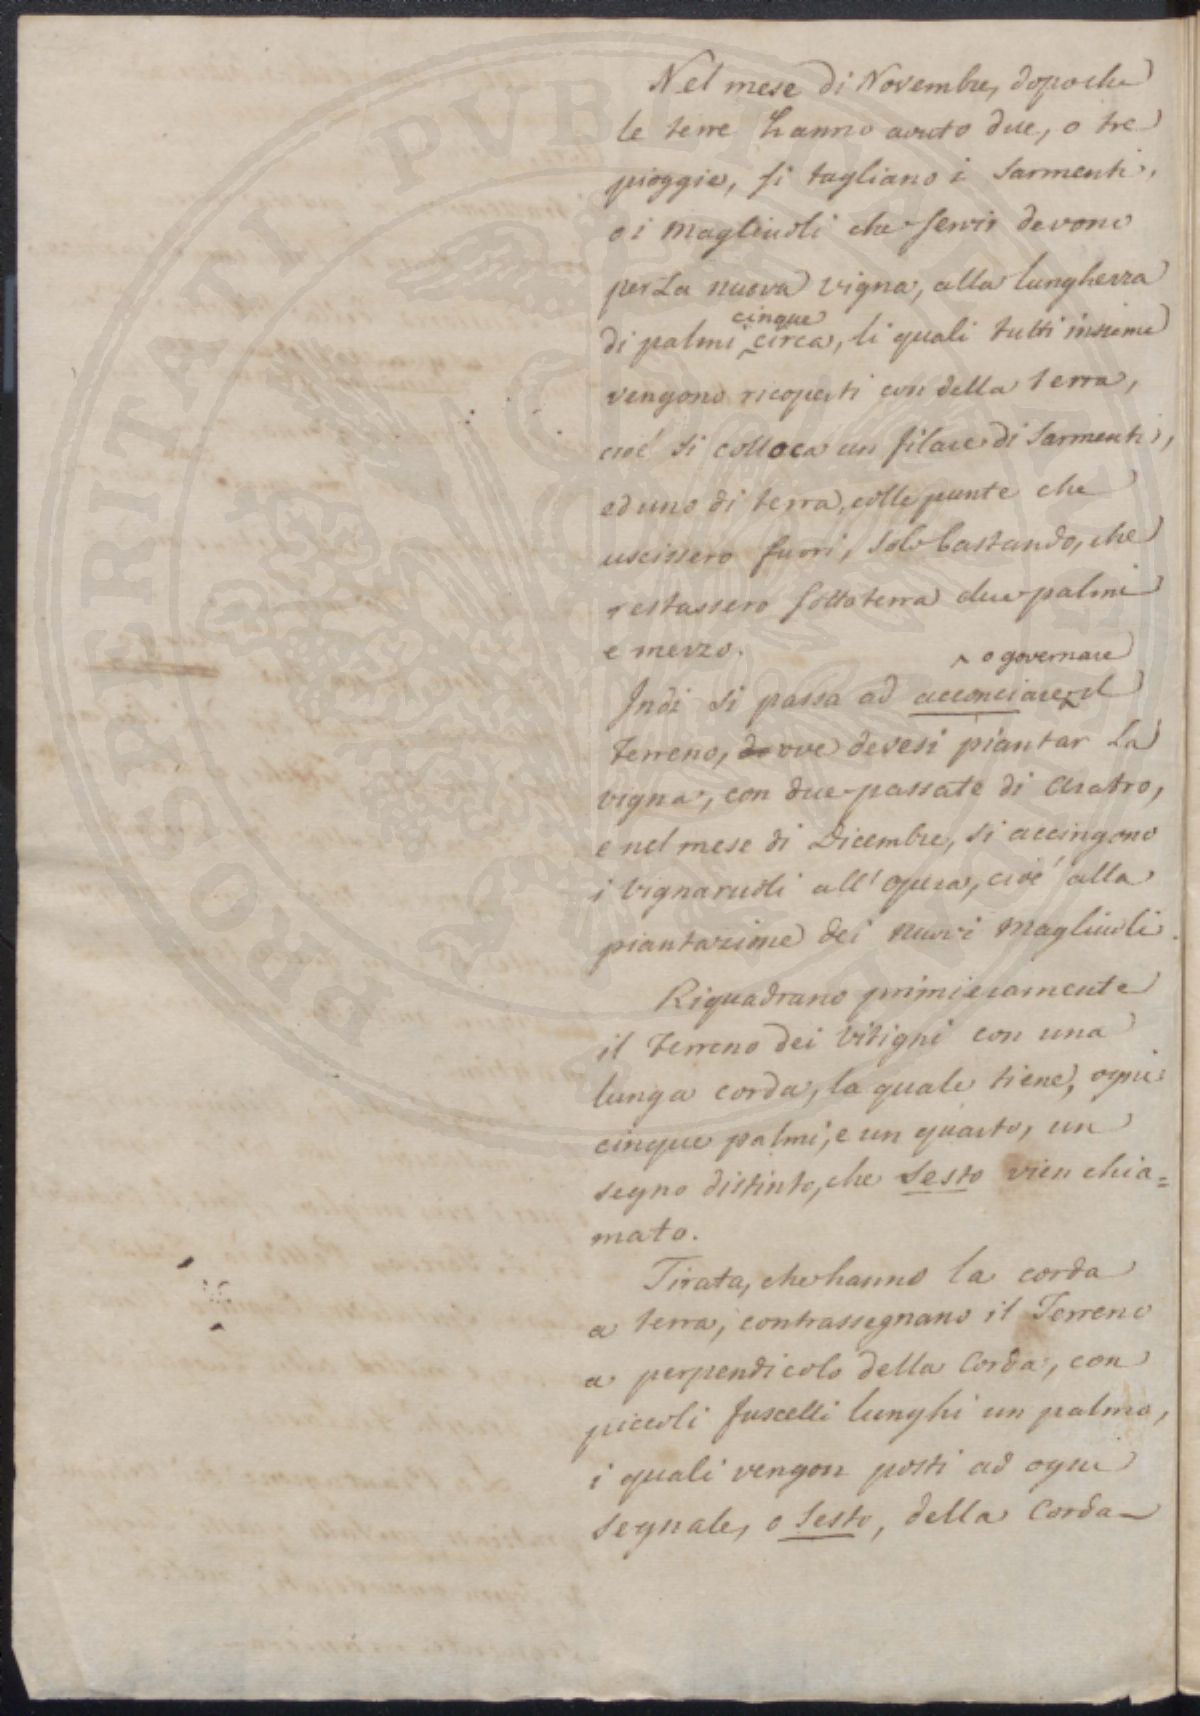 Nel mese di Novembre, dopo che
le terre hanno avuto due, o tre
pioggie, si tagliano i Sarmenti,
o i Magliuoli che servir devono
per La nuova vigna, alla lunghezza
cinque
di palmi ‸ circa, li quali tutti insieme
vengono ricoperti con della terra,
cioé si colloca un filare di Sarmenti,
ed uno di terra, colle punte che
uscissero fuori, solo bastando, che
restassero sotto terra due palmi
e mezzo.
‸ o governare
Indi si passa ad acconciare ‸ il
Terreno, do ove devesi piantar La
vigna, con due passate di Aratro,
e nel mese di Dicembre, si accingono
i Vignaruoli all' opera, cioé alla
piantazione dei nuovi Magliuoli.
Riquadrano primieramente
il Terreno dei Vitigni con una
lunga corda, la quale tiene, ogni
cinque palmi, e un quarto, un
segno distinto, che Sesto vien chia=
mato.
Tirata, che hanno la corda
a terra, contrassegnano il Terreno
a perpendicolo della Corda, con
piccoli fuscelli lunghi un palmo,
i quali vengon posti ad ogni
segnale, o Sesto, della Corda
PROSPERITATI PVBLICAE